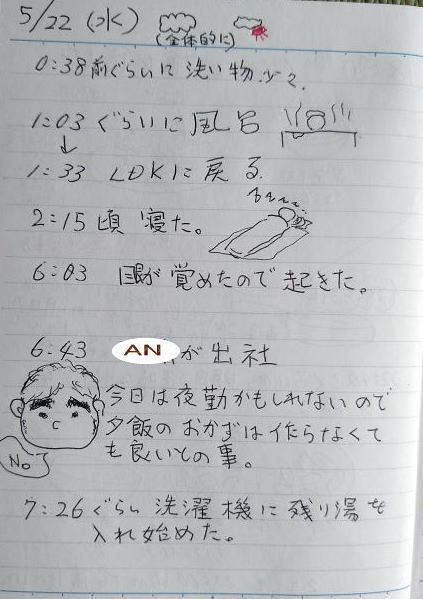 5/22 (水)
(全体的に)
0:38前ぐらいに洗い物
1:03 ぐらいに風呂
1:33 LDKに戻る
2:15頃 寝た。
6:03 目が覚めたので起きた。
6:43 ANが出社
今日は夜勤かもしれないので
夕飯のおかずは作らなくて
も良いとの事。
No
7:26ぐらい洗濯機に残り湯を
入れ始めた。